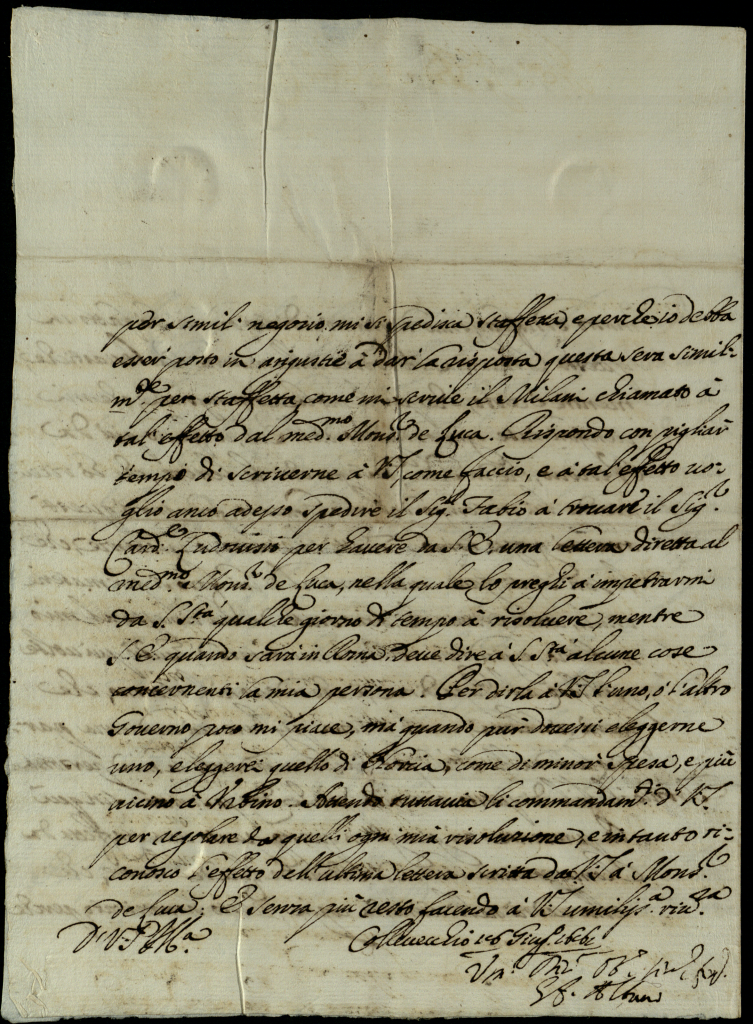 per simil negozio mi si spedisca staffetta, e perche io debba
esser posto in angustie à dar la risposta questa sera simil:
m.te per staffetta, come mi scrive il Milani chiamato à
tal effetto dal med.mo Mons.r de Luca. Rispondo con pigliar
tempo di scriverne à V.S. come faccio, e à tal effetto vo:
glio anco adesso spedire il Sig.r Fabio à trovare il Sig.r
Card.e Ludovisio per havere da S.E. una lettera diretta al
med.mo Mons.r de Luca, nella quale lo preghi à impetrarmi
da S. S.tà qualche giorno di tempo à risolvere, mentre
S. E. quando sarà in Roma deve dire à S. S.tà alcune cose
concernenti la mia persona. Per dirla à V.S. l'uno, ò l'altro
Governo poco mi piace, mà quando pur dovessi eleggerne
uno, eleggerei quello di come di minor spesa, e più
vicino à Urbino. Attendo tuttavia li commandam.ti di V.S.
per regolare da quelli ogni mia risoluzione, e intanto ri:
conosco l'effetto dell'ultima lettera scritta da V.S. à Mons.r
de Luca; E senza più resto facendo à V.S. umiliss.a riv.za
Di V.S. Ill.ma Collevecchio 16 Giug.